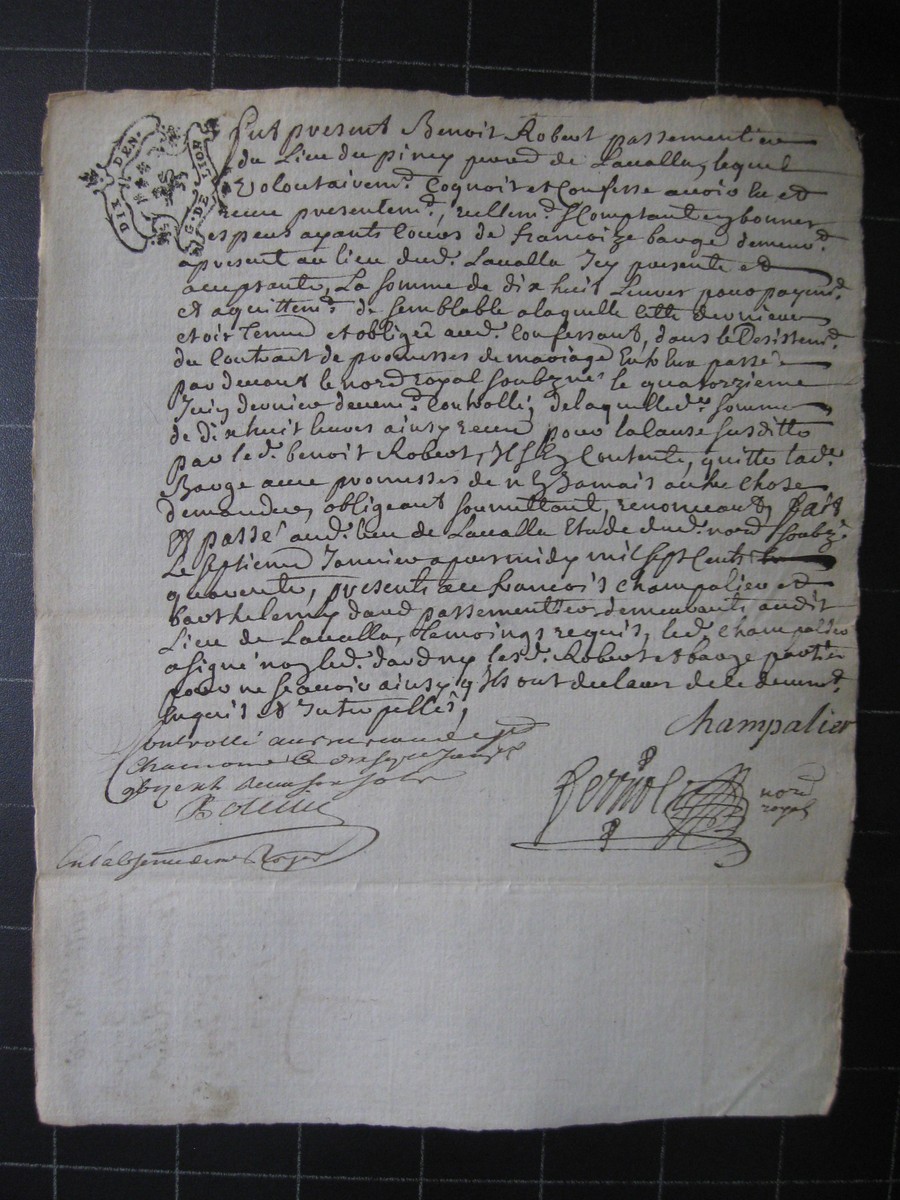 DIX DEN.
G. DE LION
Fut present Benoit Robert passementier
du Lieu du piney parr. de Lavalla, lequel
Volontairem.t Cognoit et Confesse avoir hu et
receu presentem.t, reellem.t Comptant en bonnes
especes ayants Cours de francoize bauge demeur.t
apresent au lieu dud. Lavalla Icy presente et
acceptante, La somme de dix huit Livres pour payem.t
et aquittem.t de semblable a laquelle Cette derniere
etoit tenue et obligée aud. Confessant, dans le Desistem.t
du Contrait de promesses de mariage entr'eux passé
par devant le nore royal soubzne le quatorzieme
Juin dernier deuem.t Controllé, de laquelle d. somme
de dix huit livres ainsy receue pour la Cause susditte
par led. benoit Robert, Contente, quitte lad.
Bauge avec promesses de n'en Jamais autre Chose
demander, obligeant soumettant, renonceant, fait
et passé aud. lieu de Lavalla Etude dud. nore soubz.
Le septieme Janvier apres midy mil sept Cents
quarente, presents francois Champalier et
barthelemy daud passementier, demeurants audit
Lieu de Lavalla, temoings requis, led. Champalier
a signé non led. daud ny lesd. Robert et bauge parties
pour ne scavoir ainsy qu'ils ont declaré de ce deuem.t
Enquis et Interpellés,
Champalier
Controllé au
Chamond Le
nore
royal
En l'absence de mr Royer